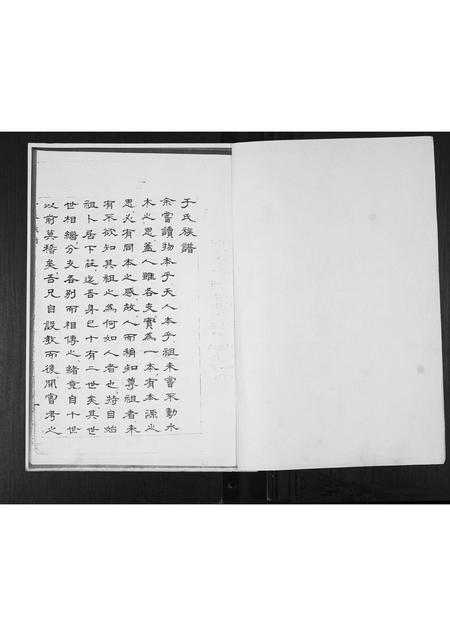 于氏族譜
余嘗讀物本乎天人本乎祖未嘗不動水
木之思蓋人雖各支實為一本有本源之
思必有同本之感故人而稍知尊祖者未
有不欲知其祖之為何如人者也特自始
祖卜居下莊迄吾身已十有二世矣其世
世相繼分支各別而相傳之緒竟自十世
以前莫稽矣吾兄自設教而後閒嘗考之